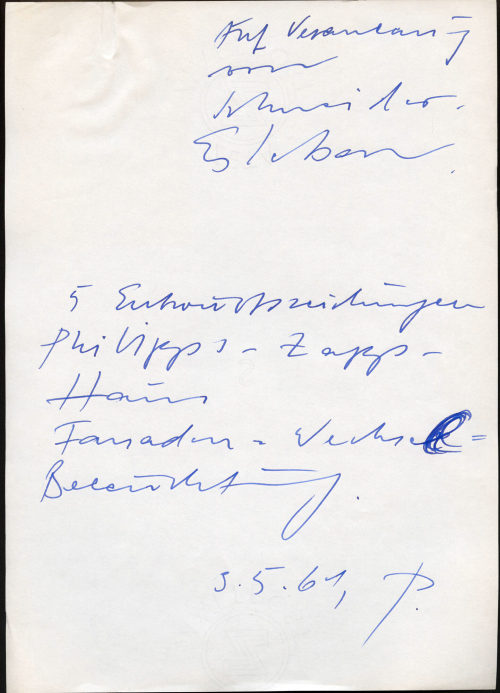 Auf Veranlassung
von
Schneider-
Esleben.
5 Entwurfszeichnungen
Philipps-Zapp-
Haus
Fassaden = Wechsel =
Beleuchtung.
3.5.61, P.